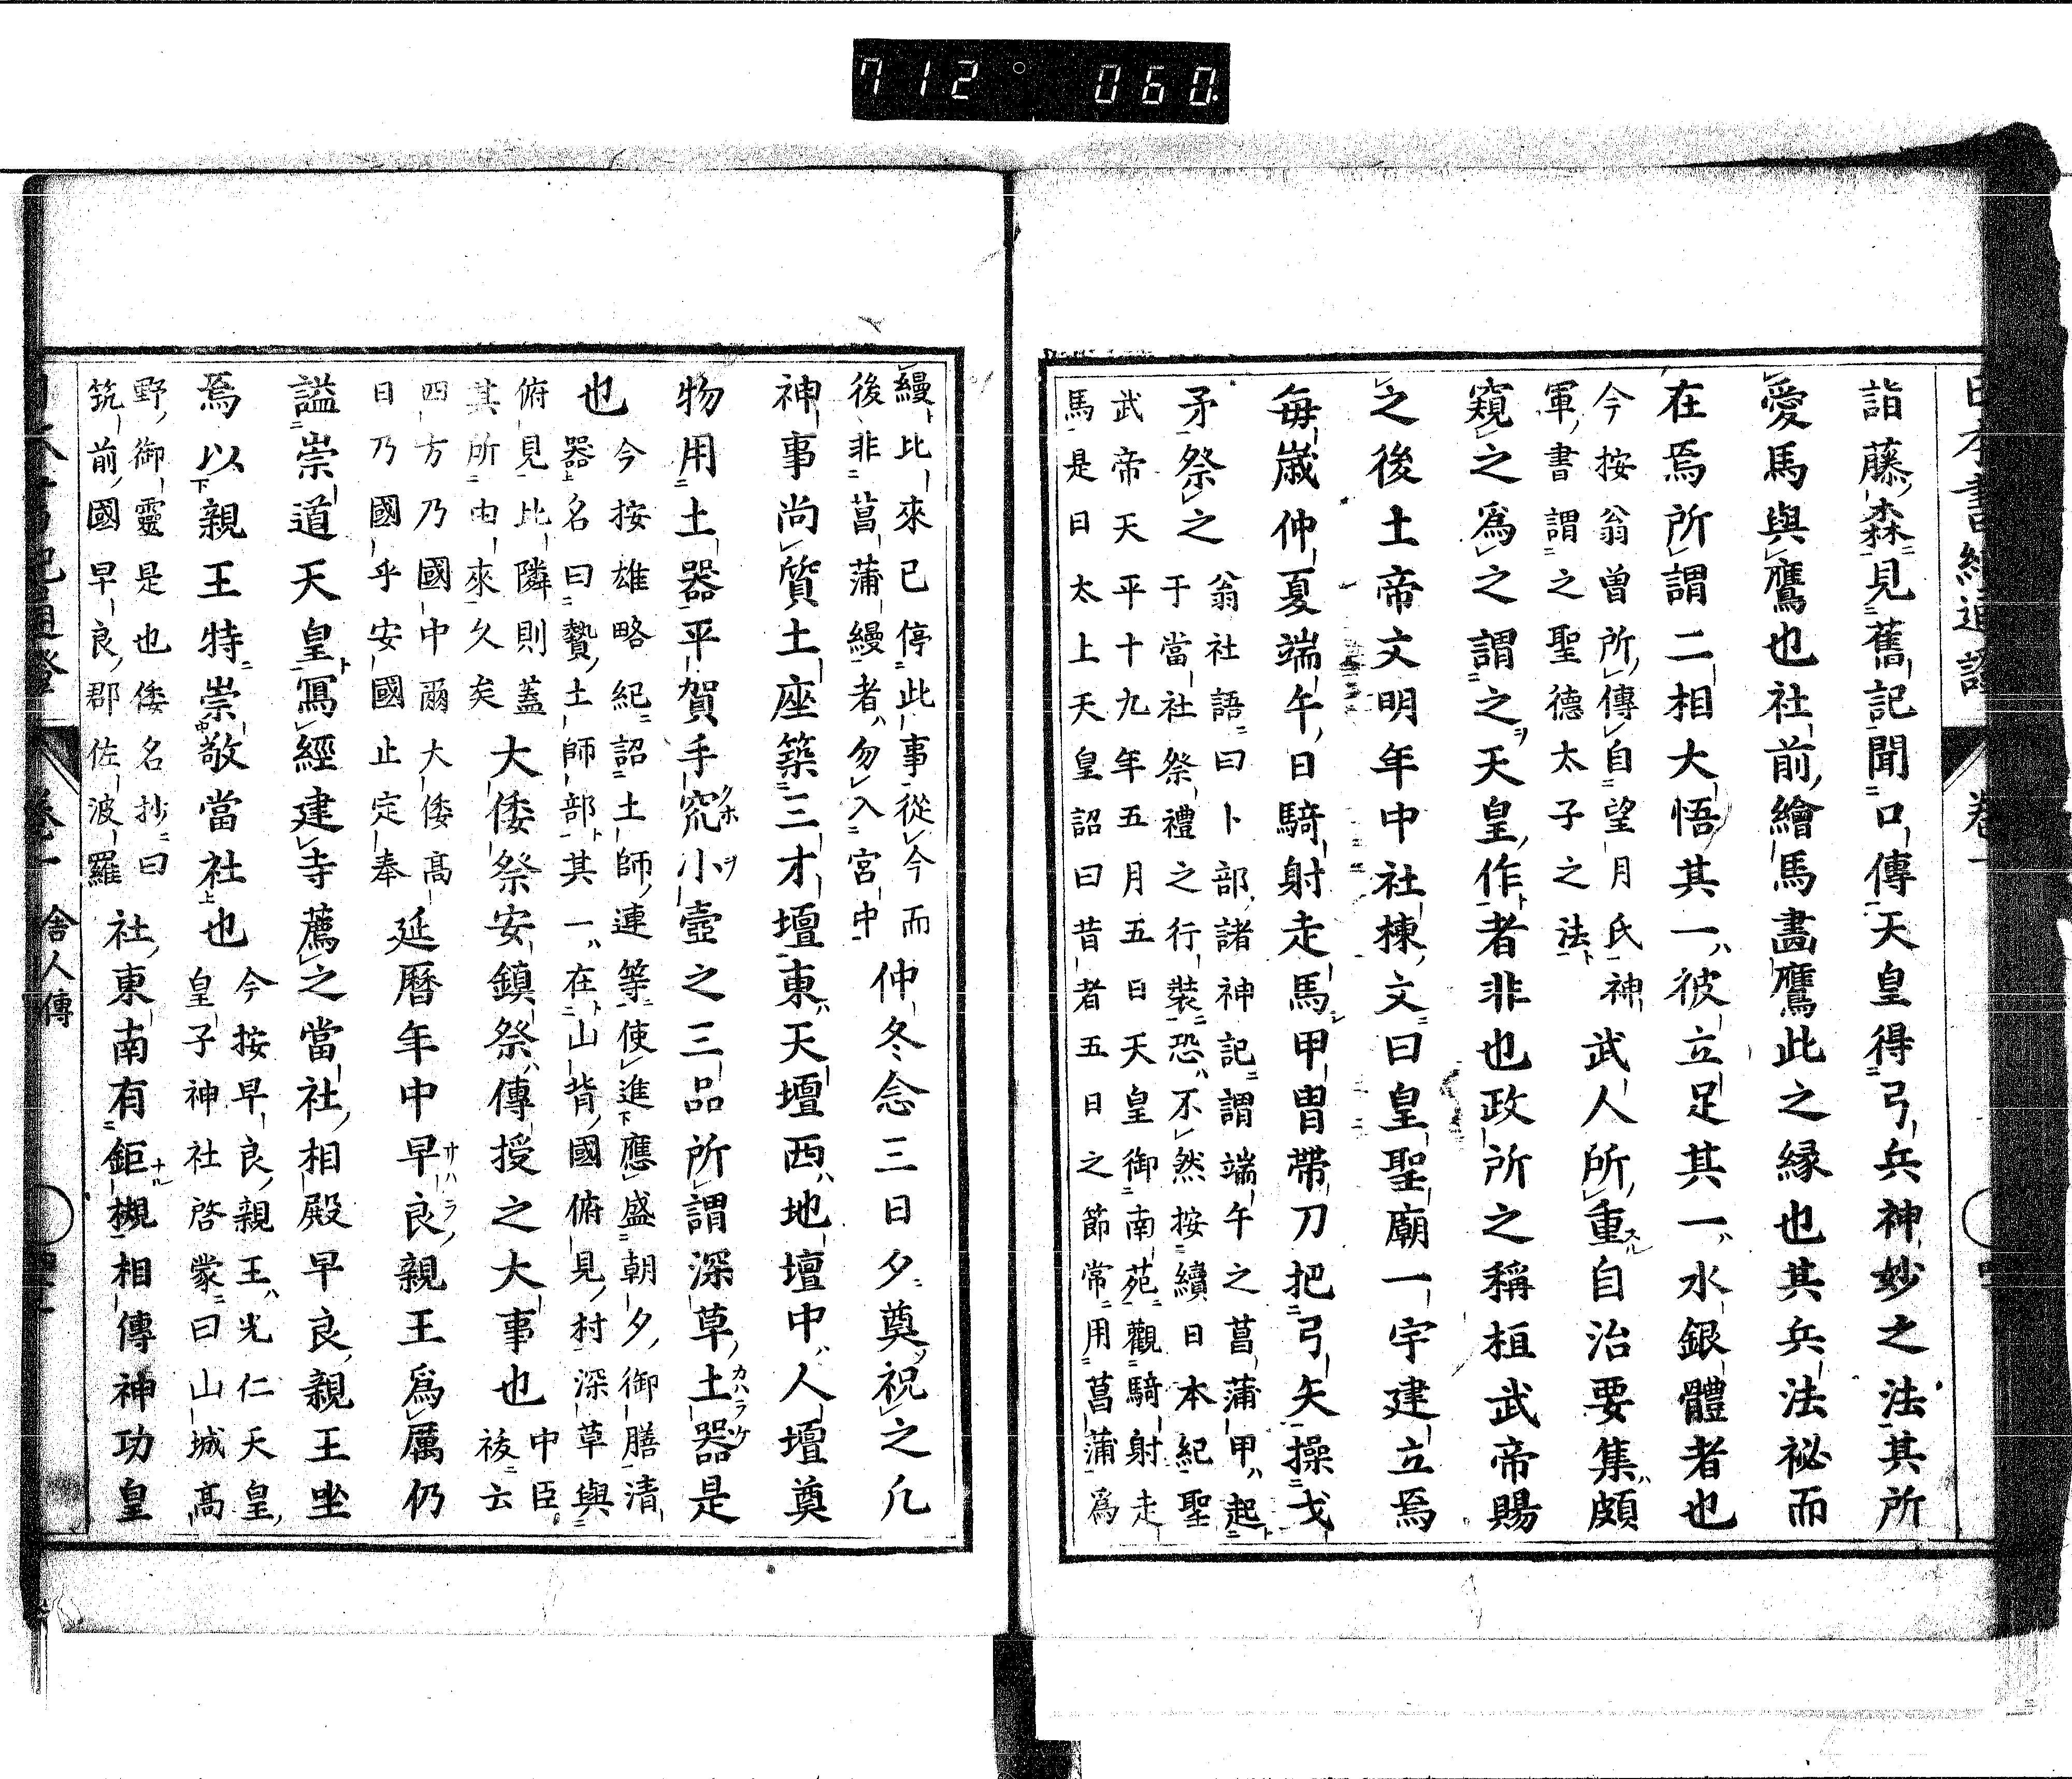 712 060
詣藤森見舊記聞口傳天皇得弓兵神妙之法其所
愛馬與鷹也社前繪馬畵鷹此之縁也其兵法祕而
在焉所謂二相大悟其一彼立足其一水銀體者也
今按翁曽所傳自望月氏神
軍書謂之聖德太子之法
武人所重自治要集頗
窺之爲之謂之天皇作者非也政所之稱桓武帝賜
之後土帝文明年中社棟文曰皇聖廟一宇建立焉
每歳仲夏端午日騎射走馬甲冑帶刀把弓矢操戈
矛祭之
翁社語曰卜部諸神記謂端午之菖蒲甲起
于當社祭禮之行裝恐不然按續日本紀聖
武帝天平十九年五月五日天皇御南苑觀騎射走
馬是日太上天皇詔曰昔者五日之節常用菖蒲爲
縵比來已停此事從今而
後非菖蒲縵者勿入宮中
仲冬念三日夕奠祝之凡
神事尚質土座築三才壇東天壇西地壇中人壇奠
物用土器平賀手窊小壺之三品所謂深草土器是
也
今按雄略紀詔土師連等使進應盛朝夕御膳清
器名曰贄土師部其一在山背國俯見村深草與
俯見比隣則蓋
其所由來久矣
大倭祭安鎮祭傳授之大事也
中臣
祓云
四方乃國中爾大倭髙
日乃國乎安國止定奉
延暦年中早良親王爲厲仍
謚崇道天皇冩經建寺薦之當社相殿早良親王坐
焉以親王特崇敬當社也
今按早良親王光仁天皇
皇子神社啓蒙曰山城髙
野御靈是也倭名抄曰
筑前國早良郡佐波羅
社東南有鉅槻相傳神功皇
舍人傳